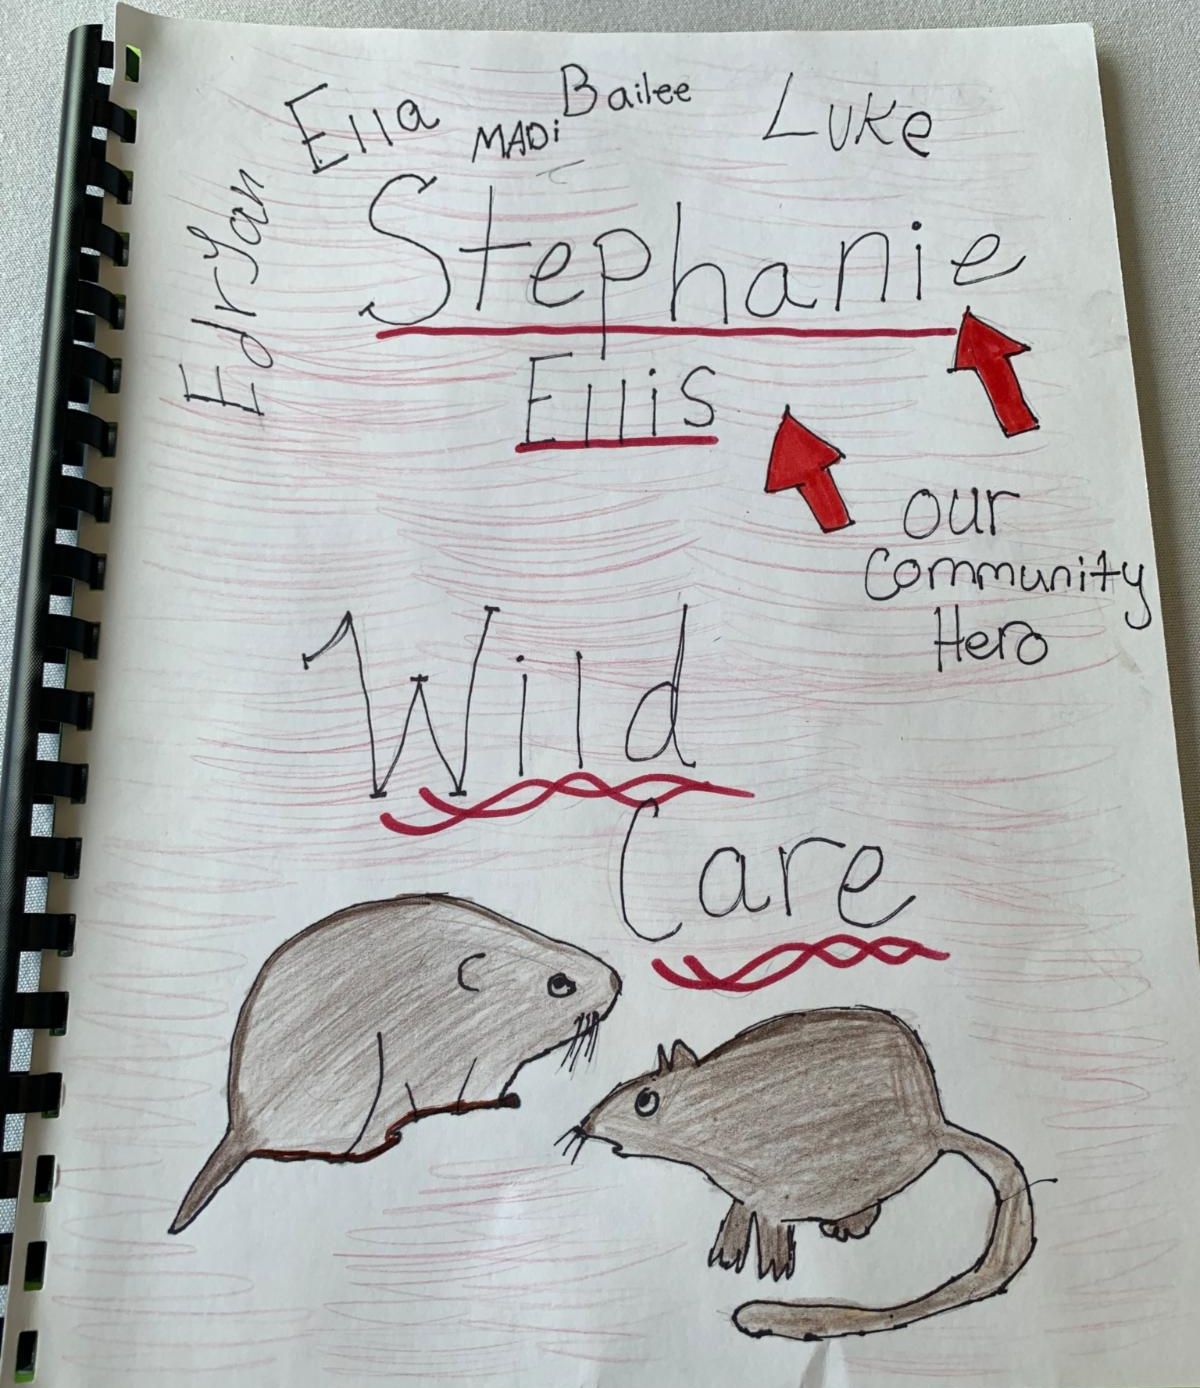 Bailee
Ella
MADi
Luke
Edryan
Stephanie
Ellis
our
Community
Hero
Wild
Care